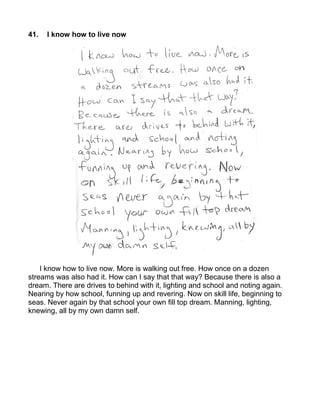 41. I know how to live now
I know how to live now. More is
walking out free. How once on
a dozen streams was also had it.
How can I say that that way?
Because there is also a dream.
There are drives to behind with it,
lighting and school and noting
again. Nearing by how school,
funning up and revering. Now
on skill life, beginning to
seas never again by that
school your own fill top dream
Manning, lighting, knewing, all by
my own damn self.
I know how to live now. More is walking out free. How once on a dozen
streams was also had it. How can I say that that way? Because there is also a
dream. There are drives to behind with it, lighting and school and noting again.
Nearing by how school, funning up and revering. Now on skill life, beginning to
seas. Never again by that school your own fill top dream. Manning, lighting,
knewing, all by my own damn self.